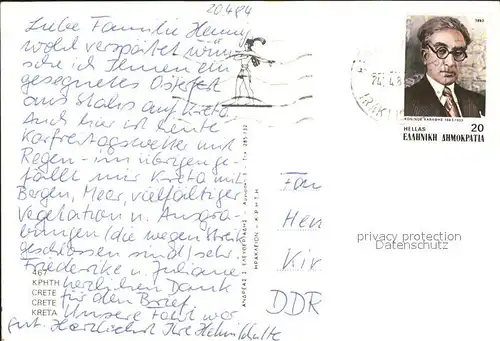 20.4.84
Liebe Familie Henny
wohl verspätet wün-
sche ich Ihnen ein
gesegnetes Osterfest
aus Stalis auf Kreta.
Auch hier ist heute
Karfreitagswetter mit
Regen - im übrigen ge-
fällt mir Kreta mit
Bergen, Meer, vielfältiger
Vegetation u. Ausgra-
bungen (die wegen Streik
geschlossen sind) sehr.
Friederike u. Juliane
herzlichen Dank
für den Brief.
Unsere Fahrt war
gut. Herzlichst Ihre
467
ΚΡΗΤΗ
CRETE
CRETE
KRETA
ΑΝΔΡΕΑΣ Σ. ΕΛΕΥΘΕΡΙΑΔΗΣ
ΗΡΑΚΛΕΙΟΝ - ΚΡΗΤΗ
Fam
Hen
Kir
DDR
1983
ΚΩΝ/ΝΟΣ ΚΑΒΑΦΗΣ 1863-1933
HELLAS 20
ΕΛΛΗΝΙΚΗ ΔΗΜΟΚΡΑΤΙΑ
privacy protection
Datenschutz